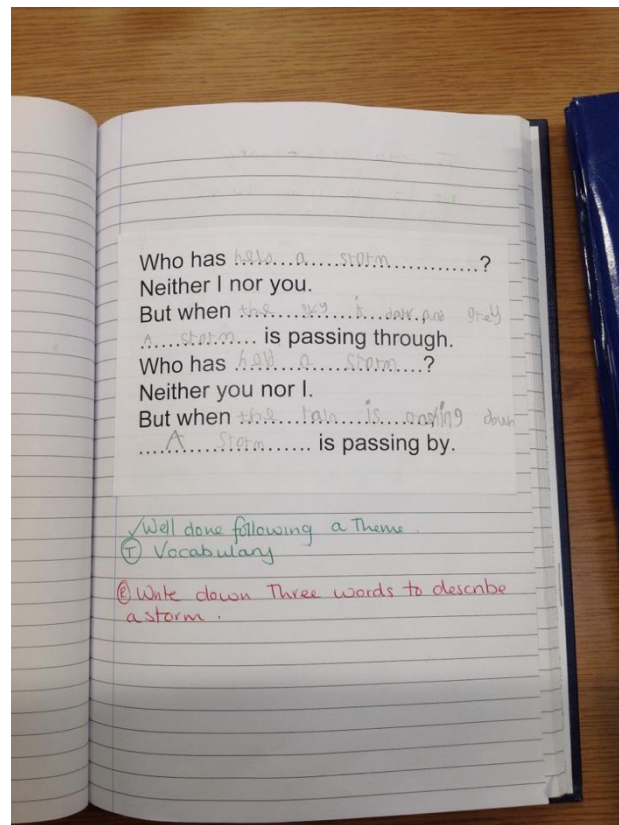 Who has held a storm ?
Neither I nor you.
But when the sky is dark and grey
A storm is passing through.
Who has held a storm ?
Neither you nor I.
But when the rain is down
A storm is passing by.
✓ Well done following a Theme.
Ⓣ Vocabulary
Ⓔ Write down Three words to describe
a storm.